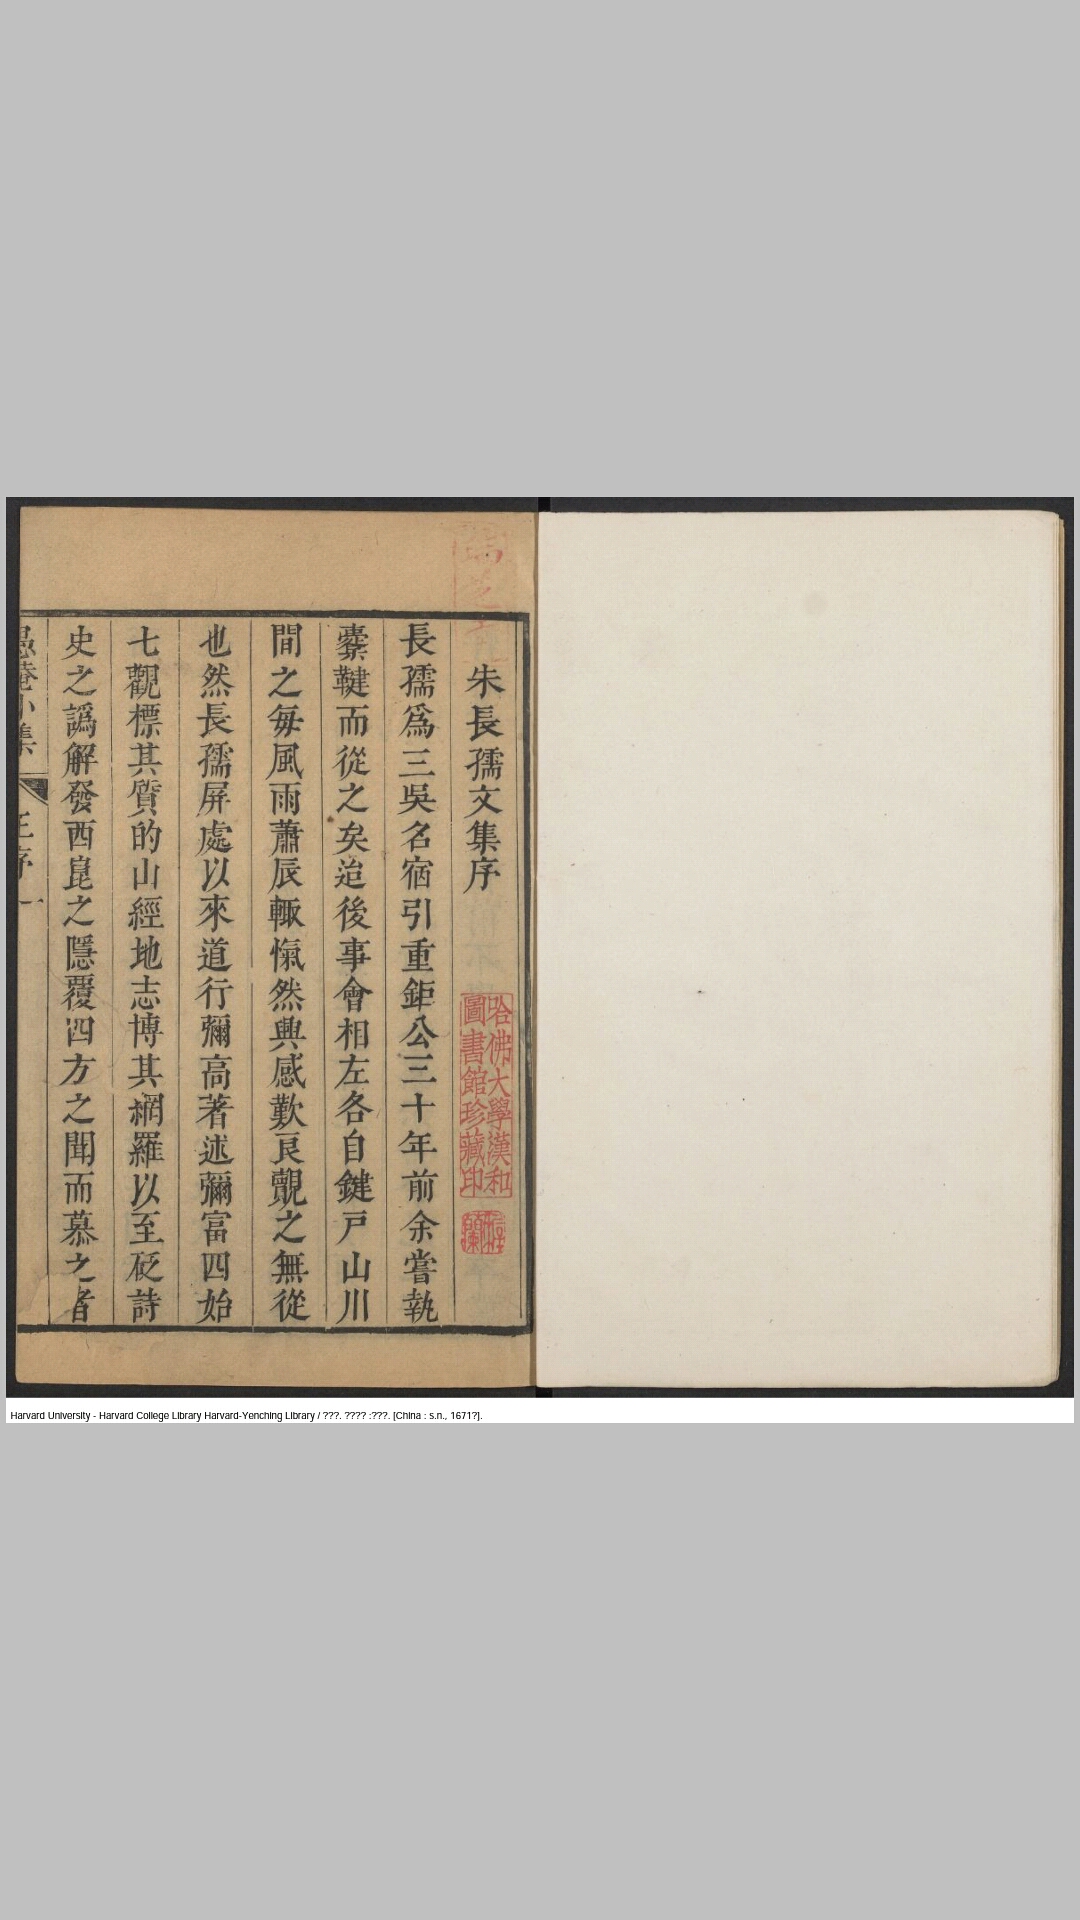 朱長孺文集序
長孺爲三吳名宿引重鉅公三十年前余嘗執
櫜鞬而從之矣迨後事會相左各自鍵戸山川
間之每風雨蕭辰輙愾然興感歎良覿之無從
也然長孺屏處以來道行彌高著述彌富四始
七觀標其質的山經地志博其網羅以至砭詩
史之譌解發西崑之隱覆四方之聞而慕之者
愚菴小集
王序
一
哈佛大學漢和
圖書館珍藏印
Harvard University - Harvard College Library Harvard-Yenching Library / ???. ???? :???. [China : s.n., 1671?].